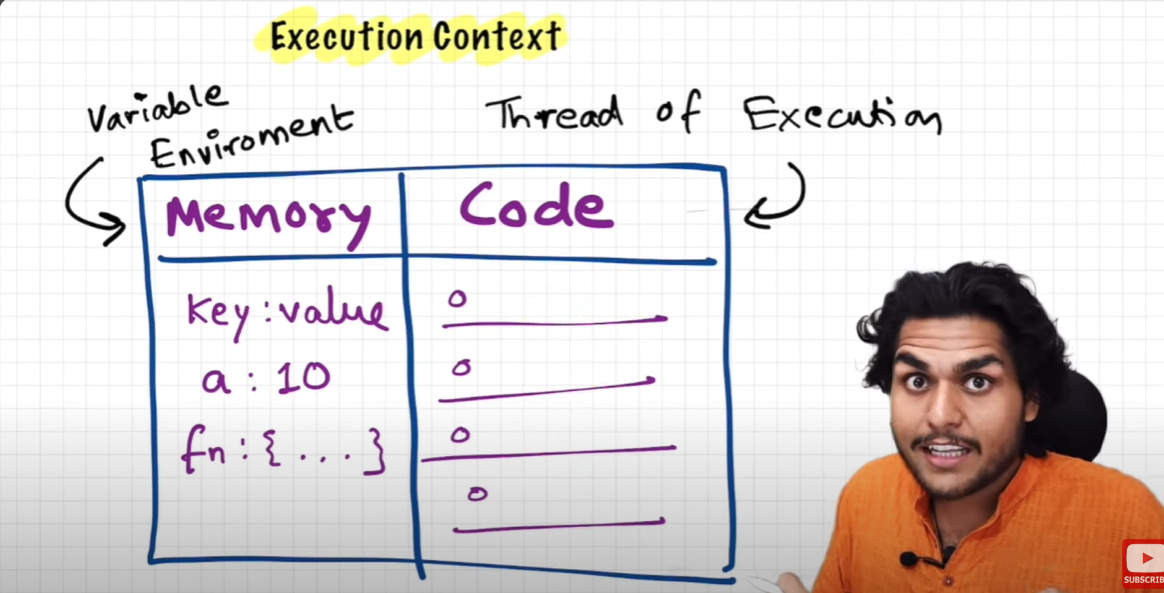 Execution Context
Variable
Enviroment
Thread of Execution
Memory
Code
key : value
a : 10
fn : { ... }
SUBSCRIB